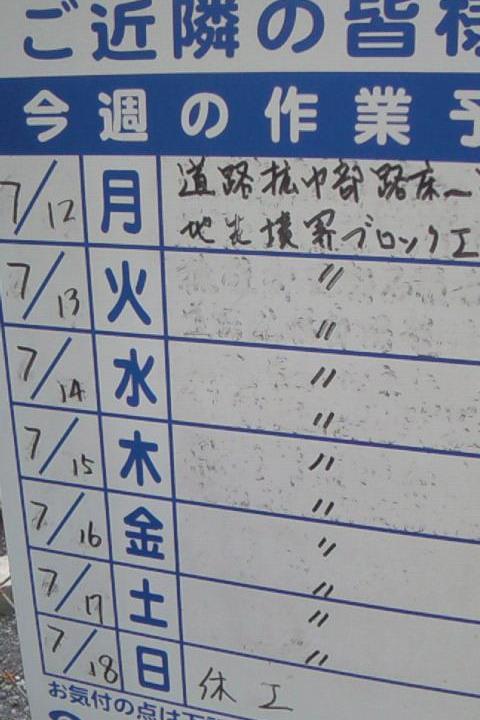 ご近隣の皆様
今週の作業予
7/12 月 道路拡巾部路床〜
地先境界ブロック工
7/13 火 〃
〃
7/14 水 〃
〃
7/15 木 〃
〃
7/16 金 〃
〃
7/17 土 〃
〃
7/18 日 休工
お気付の点は下